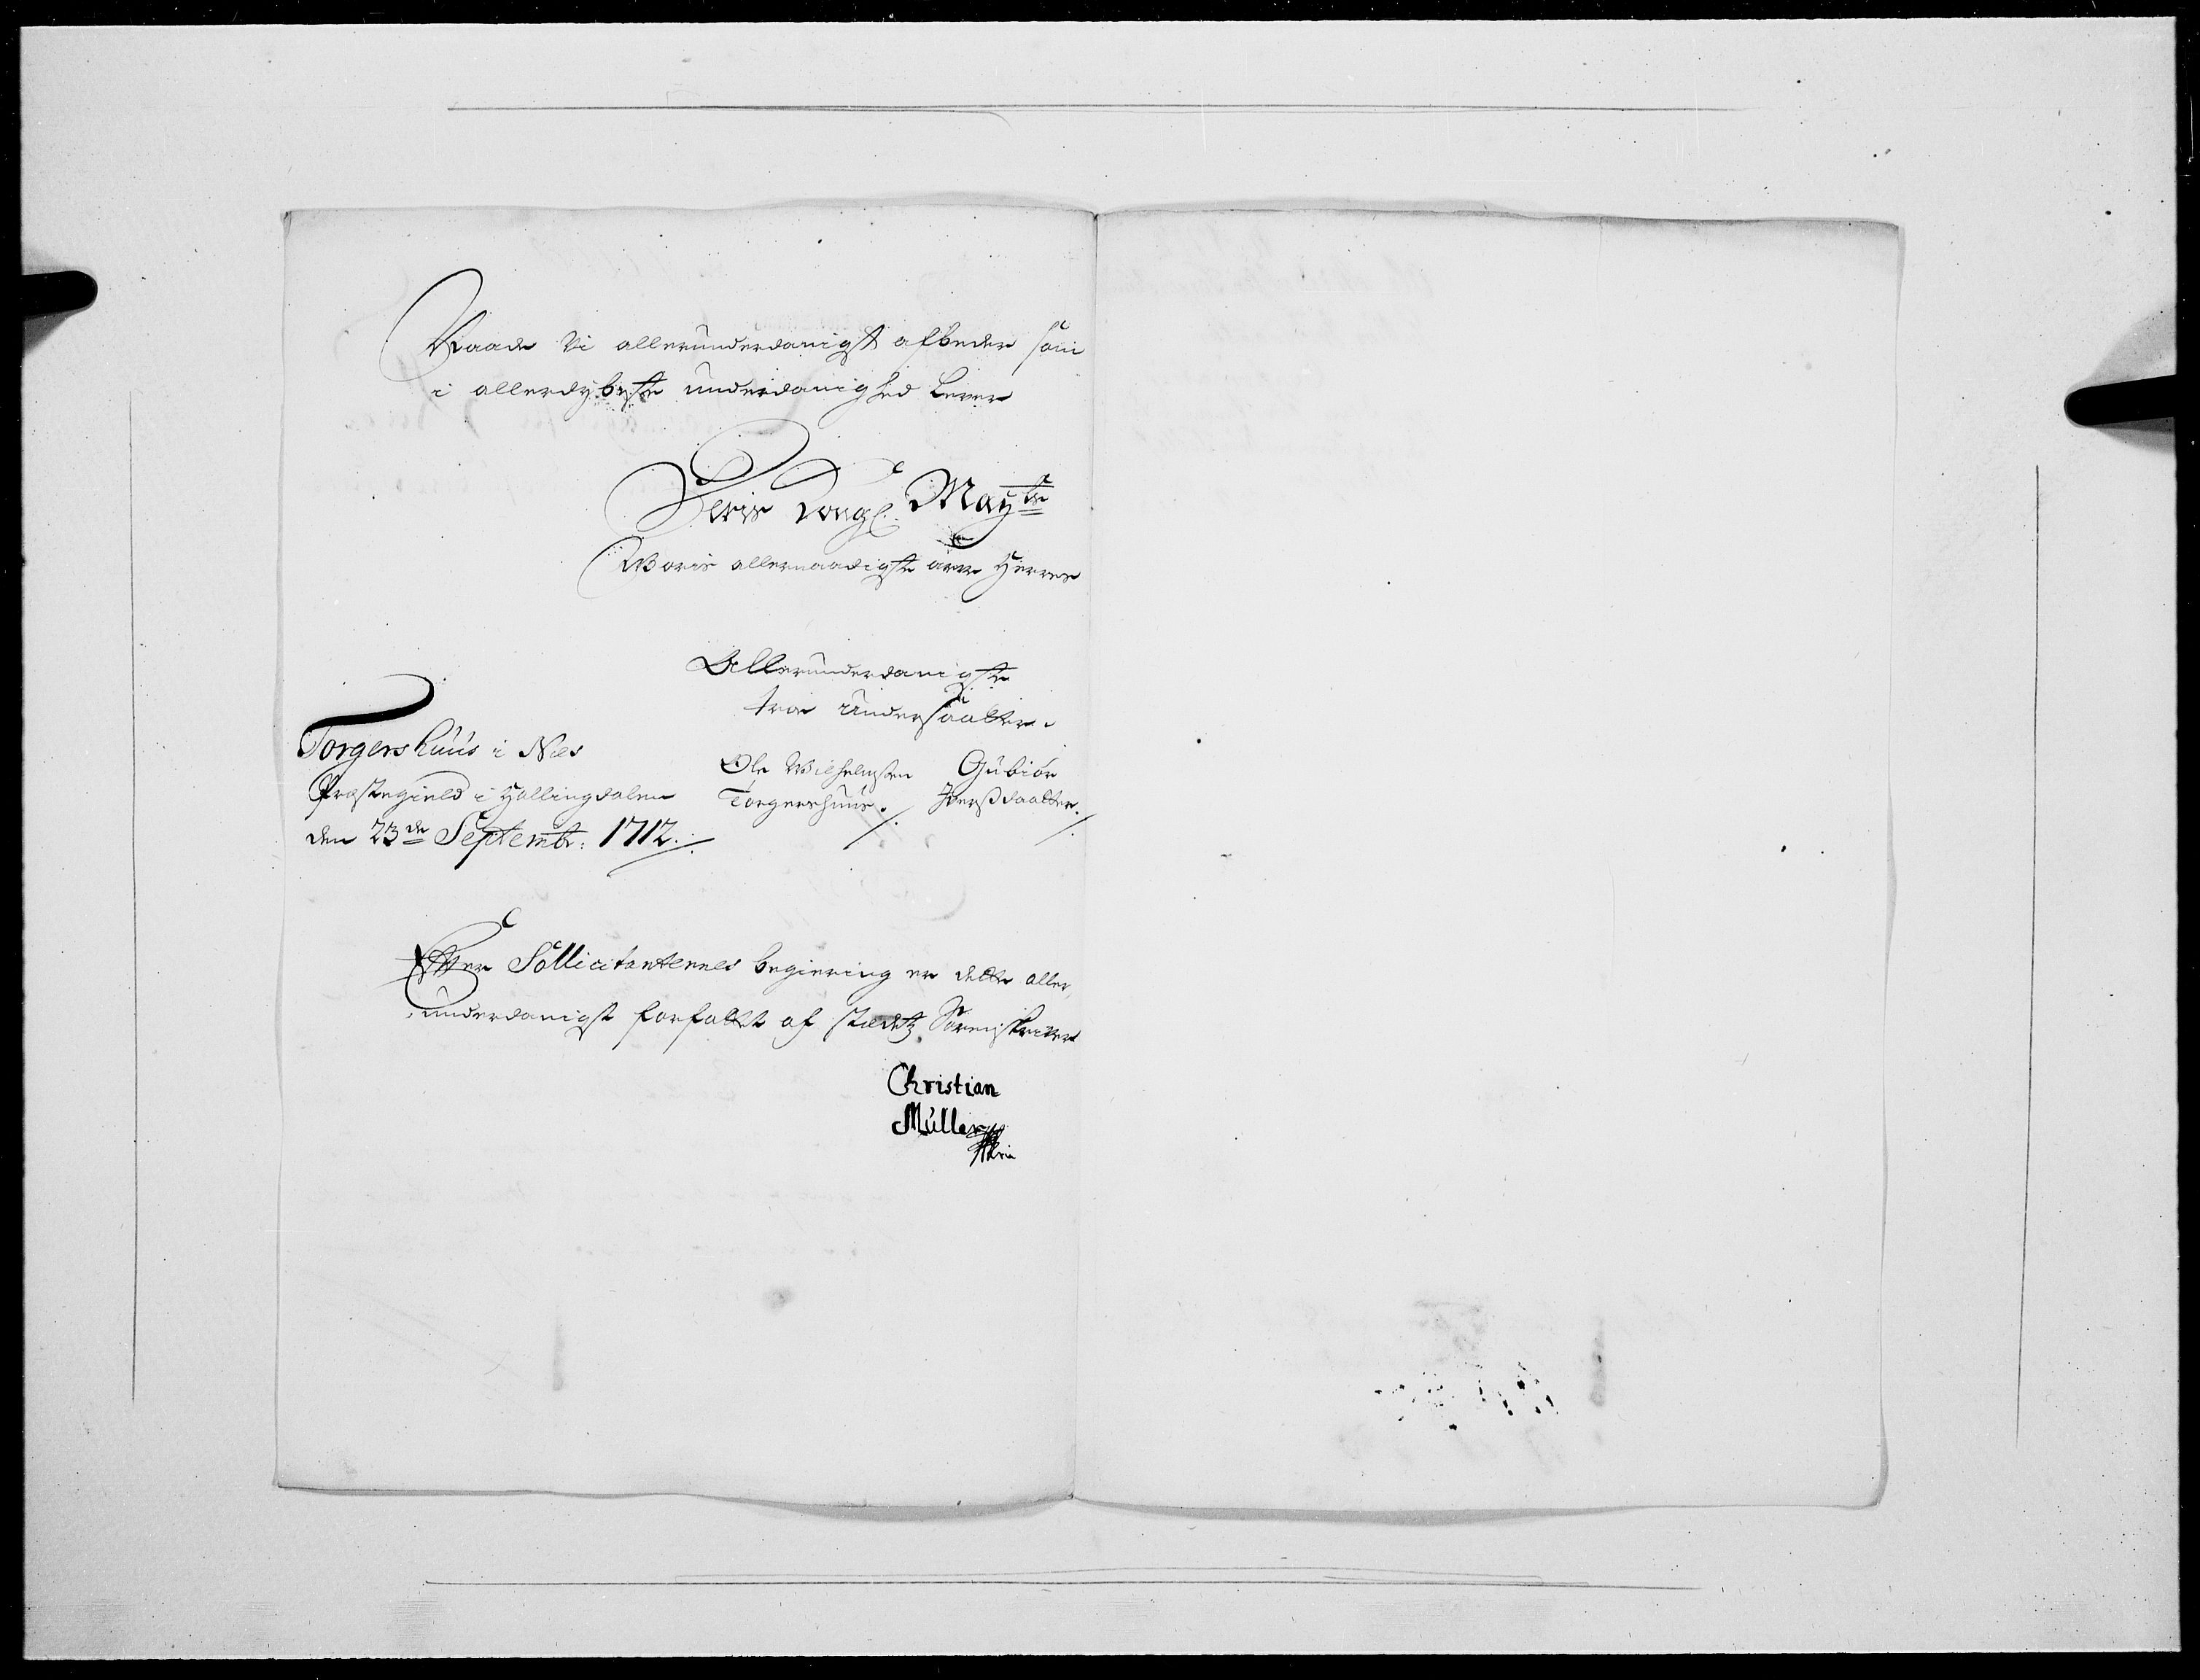 Naade Vi allerunderdanigst afbeder som
i allerdybeste underdanighed lever
Deris Kongl: Mayts
Voris allernaadigste arve Herres
Allerunderdanigste
troe Undersaatter.
Torgershuus i Næs
Præstegield i Hallingdalen
den 23de Septembr: 1712 ./.
Ole Wilhelmsen
Torgershuus ./.
Gubiör
Iversdaatter ./.
Efter Sollicitanternes begiering er dette aller
underdanigst forfattet af stædetz Sorenskriver
Christian
Müller